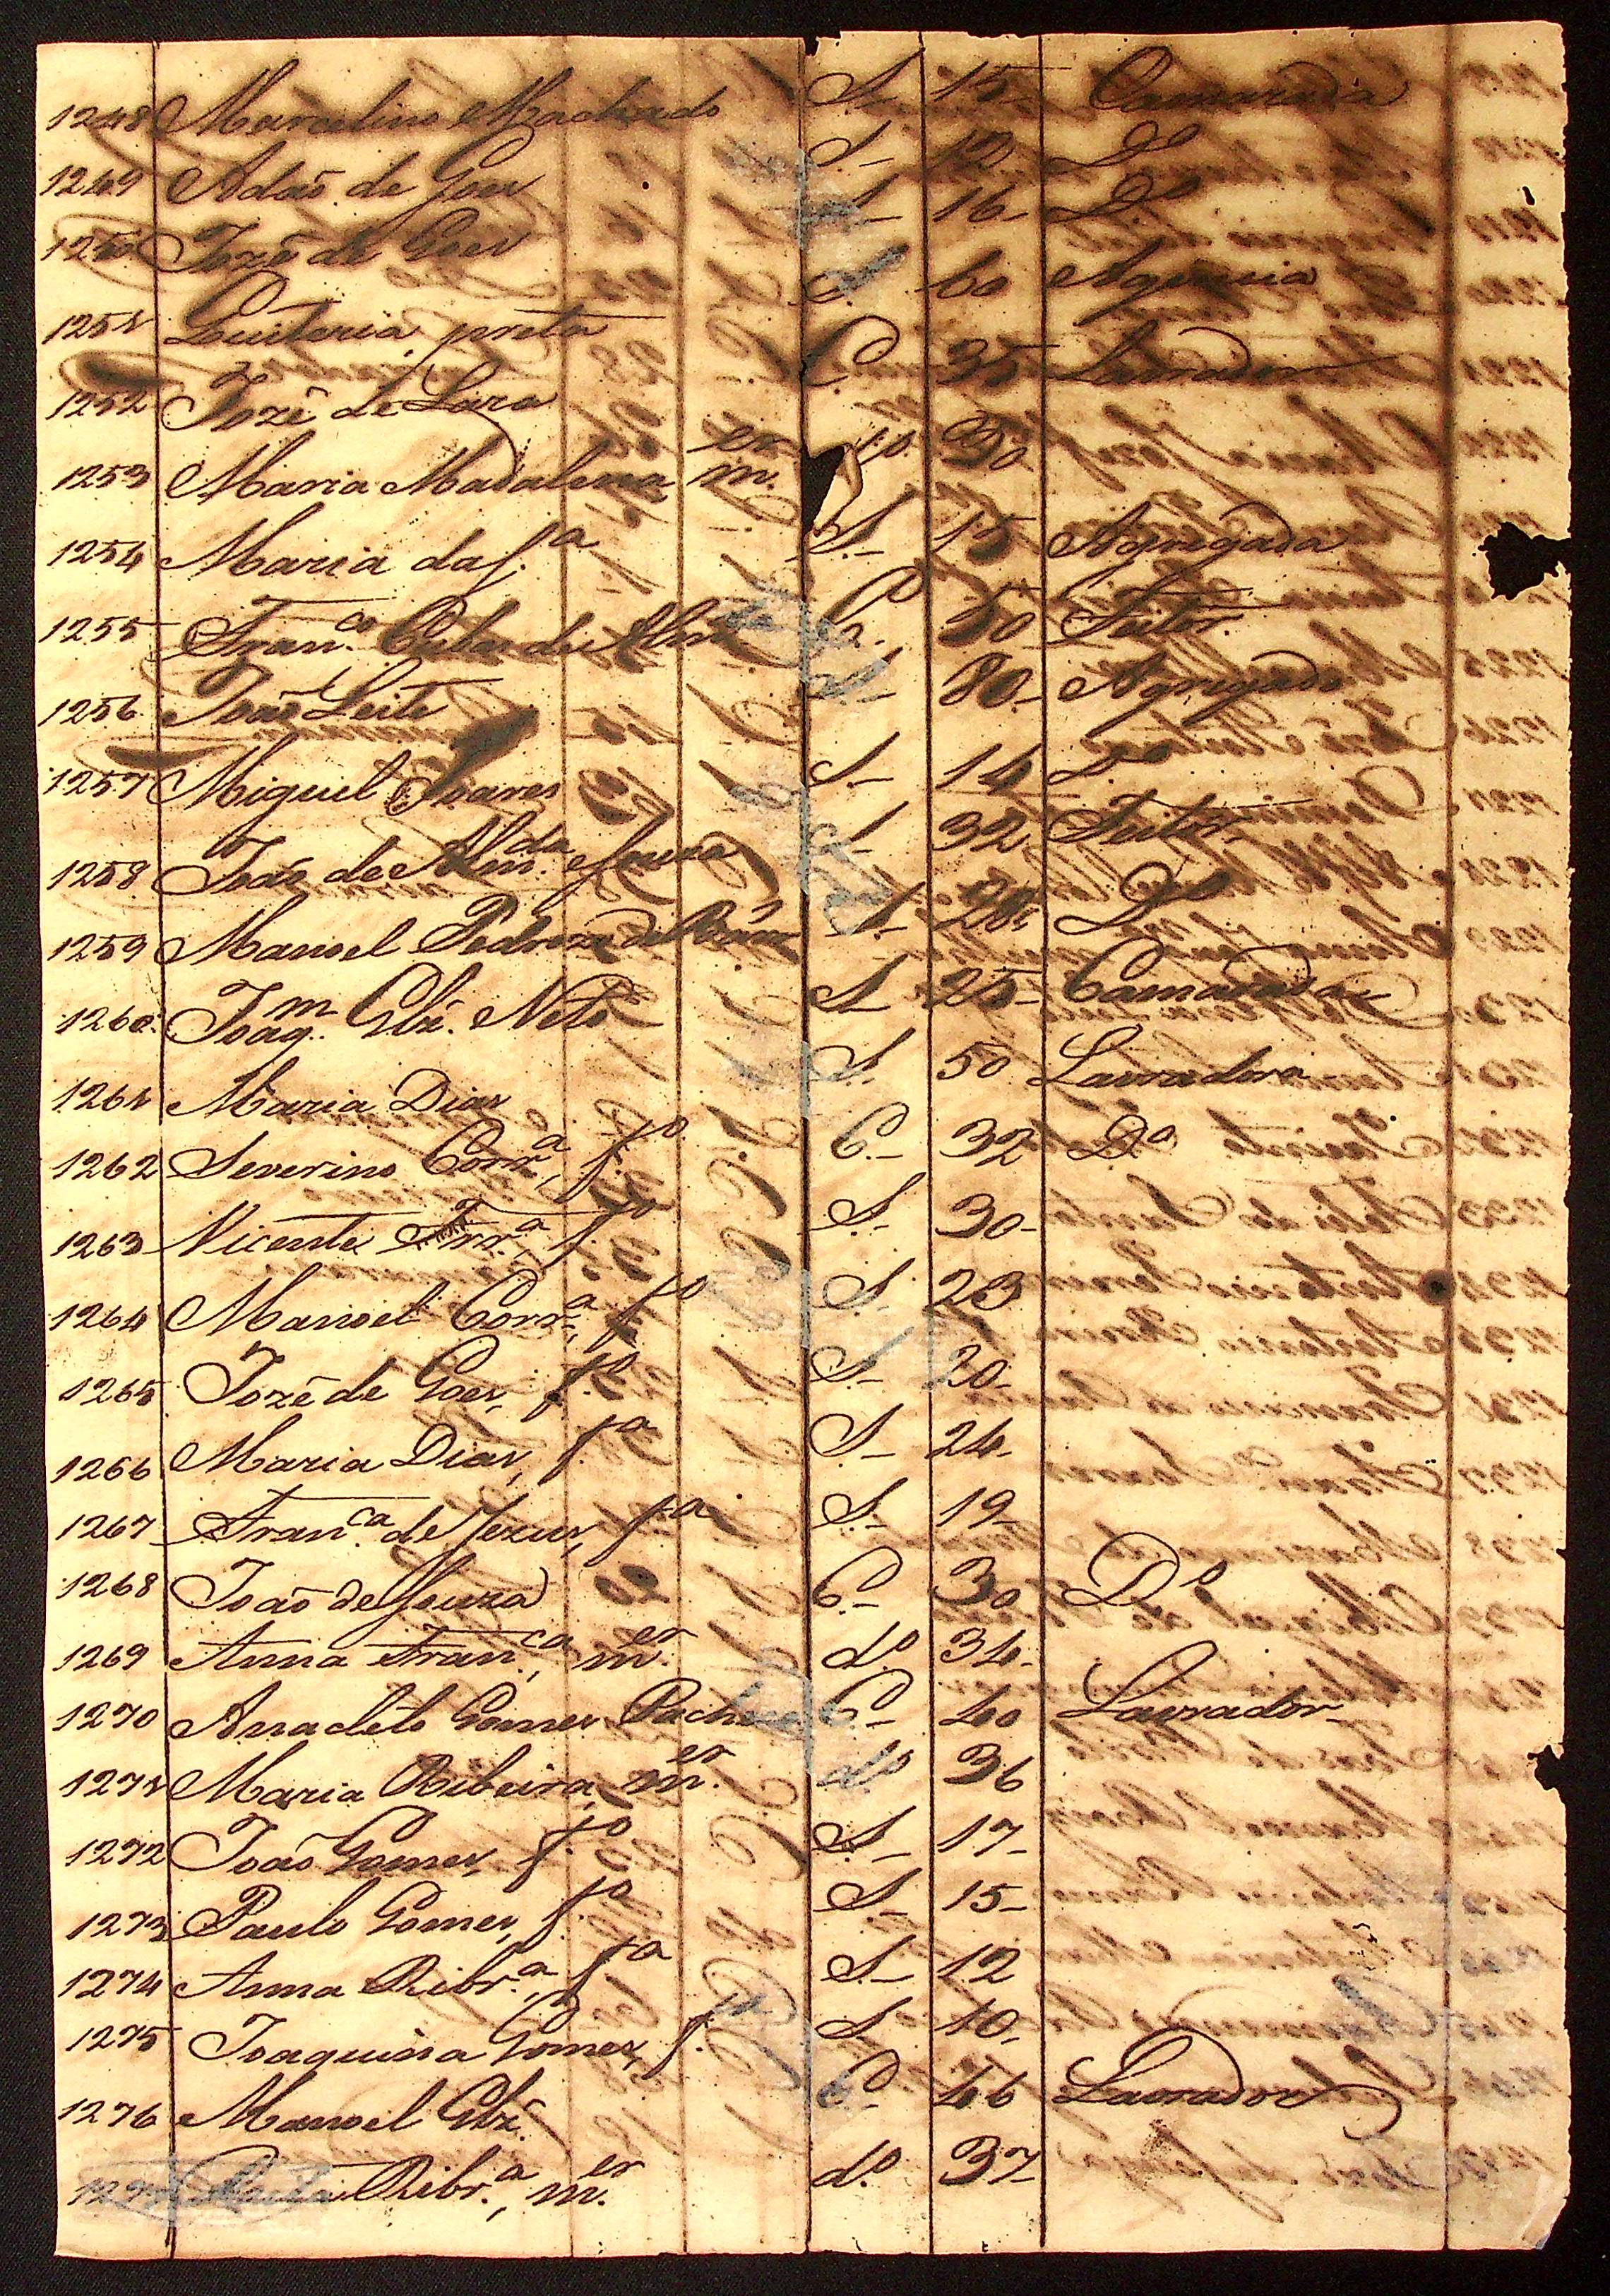 1248 Marcelino Machado S. 15 Camarada
1249 Adaõ de Goes S. 12 Dº
1250 Jozé de Goes S. 16 Dº
1251 Quiteria preta S. 60 Agencia
1252 Jozé de Lara C. 35 Lavrador
1253 Maria Madalena, m.er dº 30
1254 Maria da f.a S. 15 Agregada
1255 Fran.co de C. 50 Feitor
1256 Joaõ Leite S. 80 Agregado
1257 Miguel Soares S. 14 Dº
1258 Joaõ de Alm.da Souza S. 32 Feitor
1259 Manoel Pedrozo de S. 28 Dº
1260 Joaq.m Glz. Neto S. 25 Camarada
1261 Maria Dias S. 50 Lavradora
1262 Severino Corr.a, f.o C. 32 Dº
1263 Vicente Ferr.a, f.o S. 30
1264 Manoel Corr.a, f.o S. 23
1265 Jozé de Goes, f.o S. 20
1266 Maria Dias, f.a S. 24
1267 Fran.ca de Jezus, f.a S. 19
1268 Joaõ de Souza C. 30 Dº
1269 Anna Fran.ca, m.er dº 34
1270 Anacleto Gomes Pacheco C. 40 Lavrador
1271 Maria Ribeira, m.er dº 36
1272 Joaõ Gomes, f.o S. 17
1273 Paulo Gomes, f.o S. 15
1274 Anna Ribr.a, f.a S. 12
1275 Joaquina Gomes, f.a S. 10
1276 Manoel Glz. C. 46 Lavrador
Ribr.a, m.er dº 37